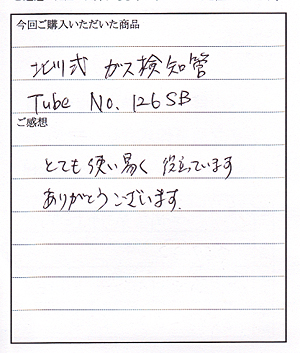 今回ご購入いただいた商品
北川式 ガス検知管
Tube No. 126SB
ご感想
とても使い易く 役立っています
ありがとうございます.